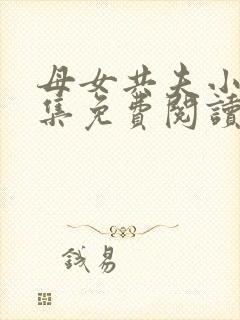 母女共夫小
集免費閱讀
錢易